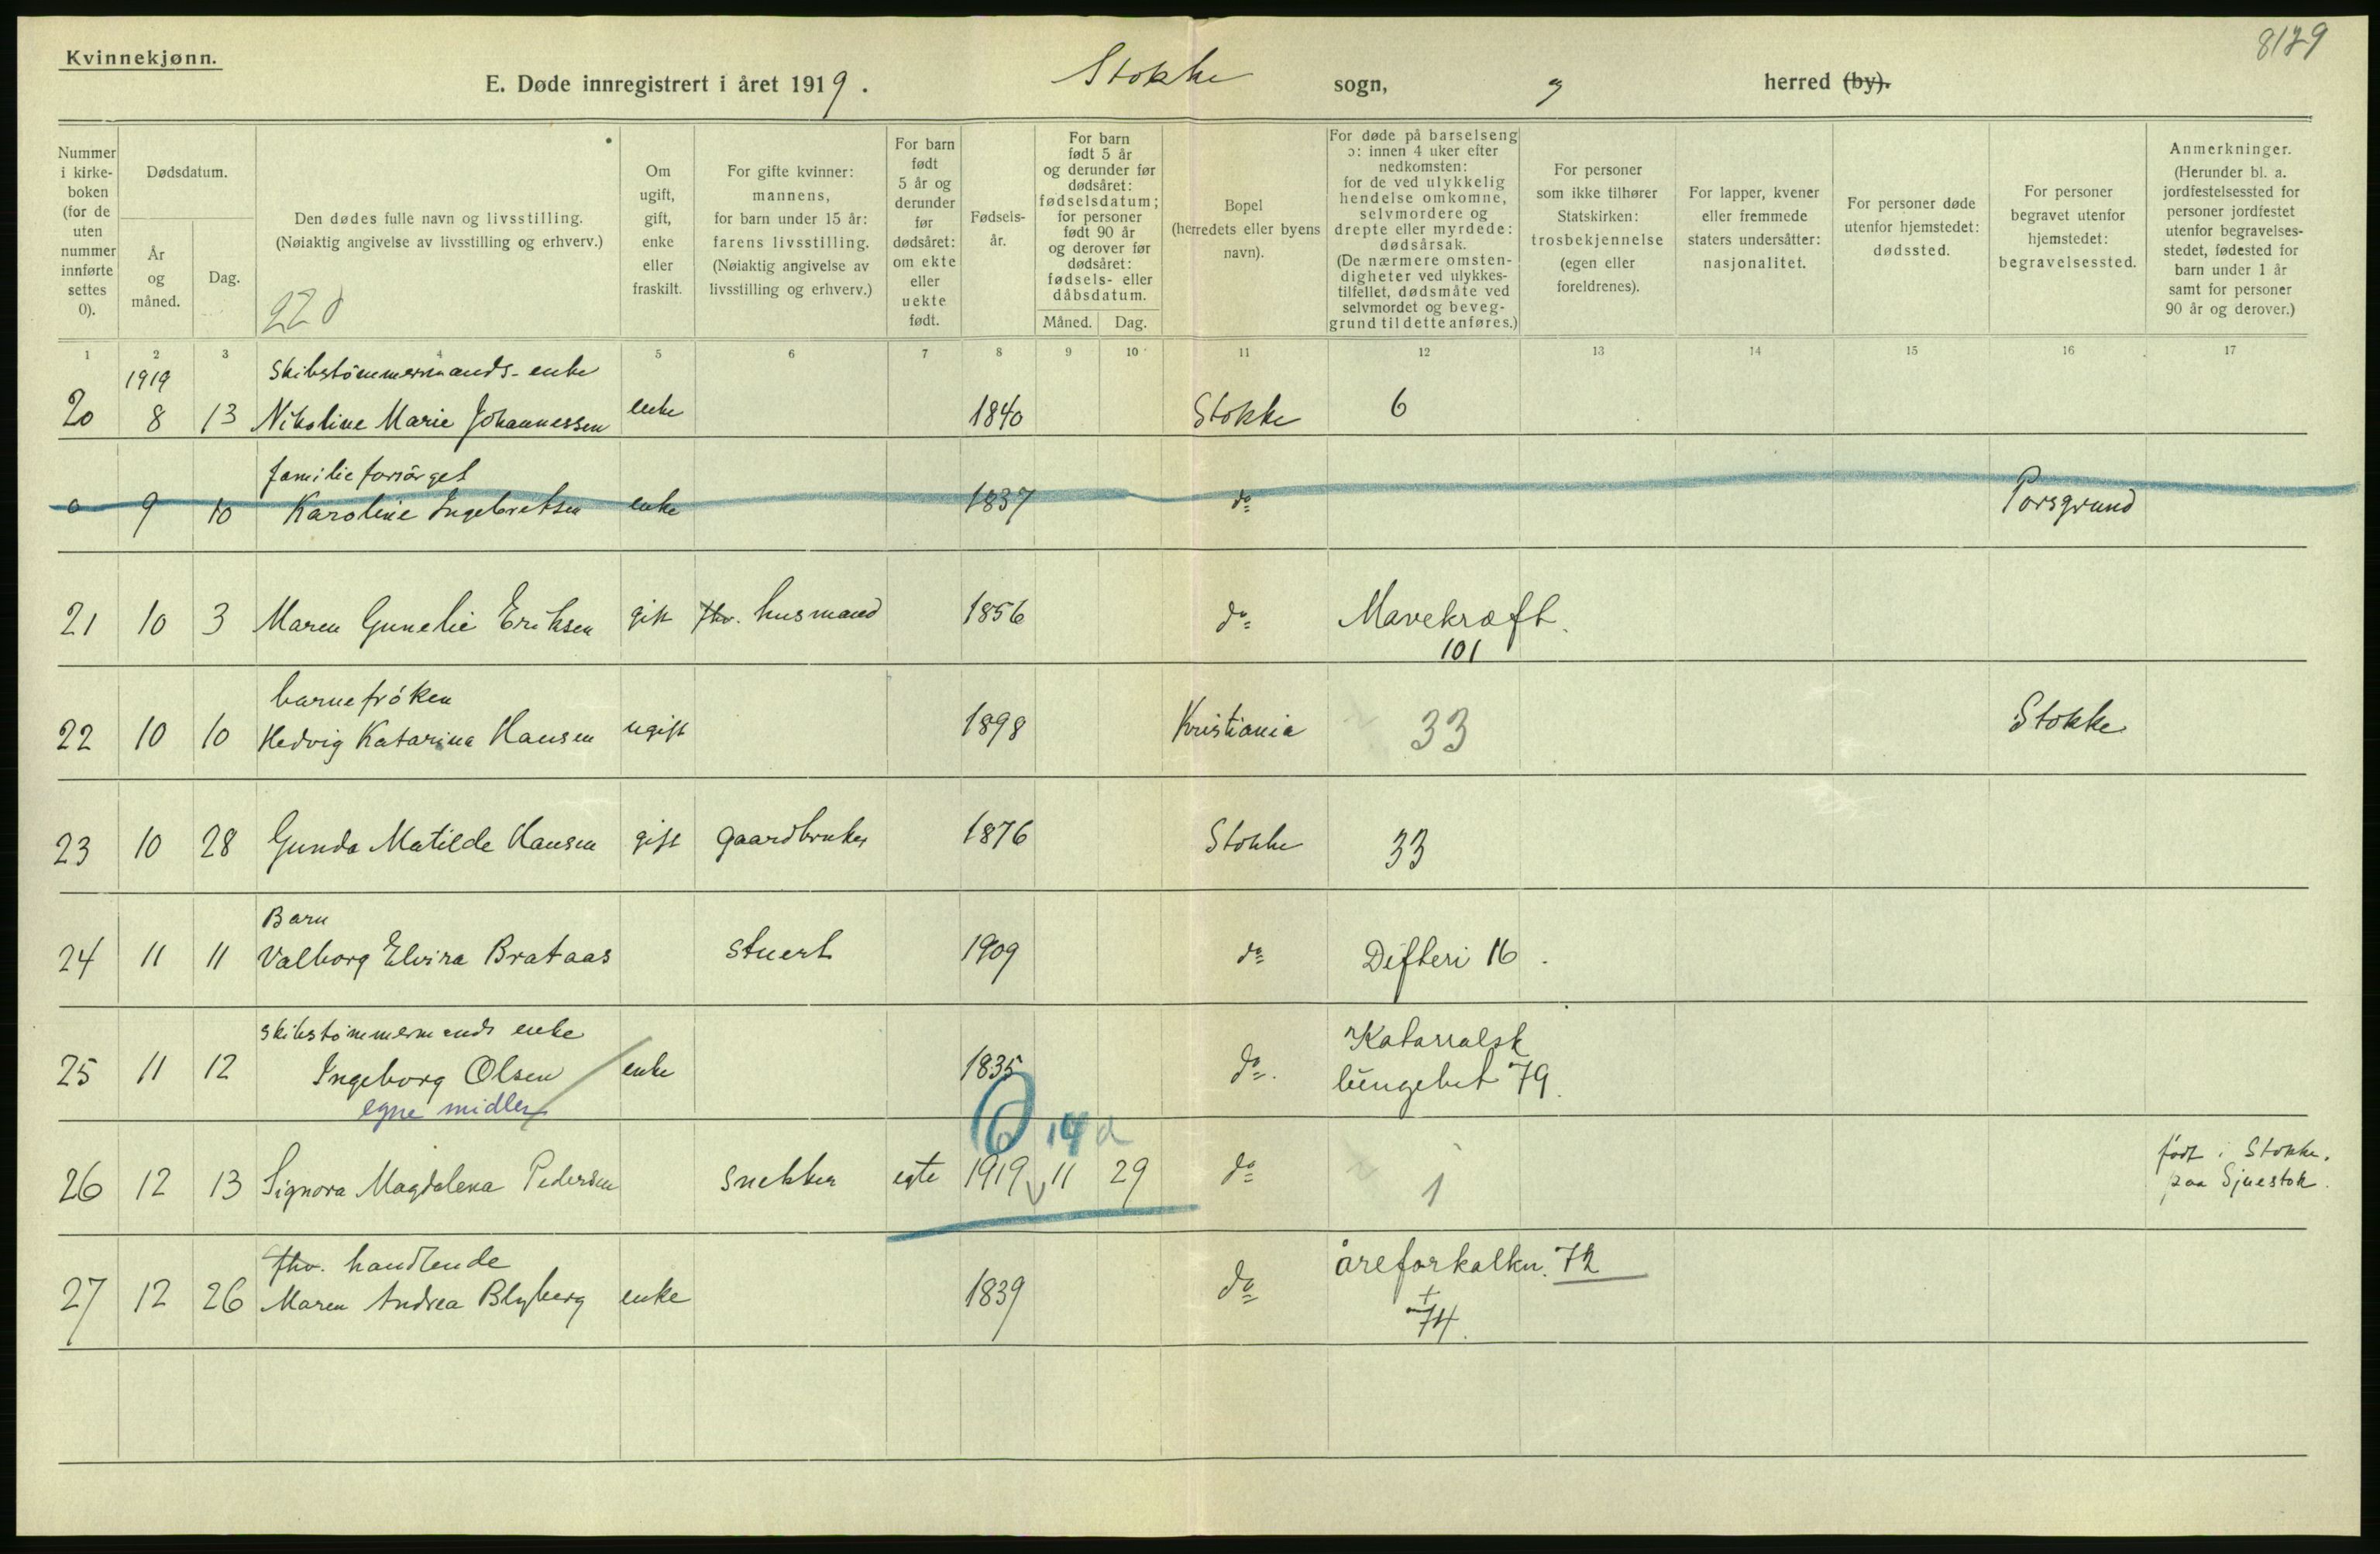 8129
Kvinnekjønn.
E. Døde innregistrert i året 1919. Stokke sogn, og herred (by).
Nummer i kirke-boken (for de uten nummer innførte settes 0).
Dødsdatum.
År og måned.
Dag.
Den dødes fulle navn og livsstilling.
(Nøiaktig angivelse av livsstilling og erhverv.)
220
Om ugift, gift, enke eller fraskilt.
For gifte kvinner: mannens, for barn under 15 år: farens livsstilling. (Nøiaktig angivelse av livsstilling og erhverv.)
For barn født 5 år og derunder før dødsåret: om ekte eller uekte født.
Fødsels-år.
For barn født 5 år og derunder før dødsåret: fødselsdatum; for personer født 90 år og derover før dødsåret: fødsels- eller dåbsdatum.
Måned. Dag.
Bopel (herredets eller byens navn).
For døde på barselseng ɔ: innen 4 uker efter nedkomsten: for de ved ulykkelig hendelse omkomne, selvmordere og drepte eller myrdede: dødsårsak. (De nærmere omsten-digheter ved ulykkes-tilfellet, dødsmåte ved selvmordet og beveg-grund til dette anføres.)
For personer som ikke tilhører Statskirken: trosbekjennelse (egen eller foreldrenes).
For lapper, kvener eller fremmede staters undersåtter: nasjonalitet.
For personer døde utenfor hjemstedet: dødssted.
For personer begravet utenfor hjemstedet: begravelsessted.
Anmerkninger. (Herunder bl. a. jordfestelsessted for personer jordfestet utenfor begravelses-stedet, fødested for barn under 1 år samt for personer 90 år og derover.)
1 2 3 4 5 6 7 8 9 10 11 12 13 14 15 16 17
1919 Skibstömmermands-enke
20 8 13 Nikoline Marie Johannessen enke 1840 Stokke 6
familieforsörget
0 9 10 Karoline Ingebretsen enke 1837 do Porsgrund
21 10 3 Maren Gunelie Eriksen gift fhv. husmand 1856 do Mavekræft.
101
barnefröken
22 10 10 Hedvig Katarina Hansen ugift 1898 Kristiania 33 Stokke
23 10 28 Gunda Matilde Hansen gift gaardbruker 1876 Stokke 33
Barn
24 11 11 Valborg Elvira Brataas stuert 1909 do Difteri 16.
skibstömmermands enke Katarralsk
25 11 12 Ingeborg Olsen enke 1835 do. lungebet 79.
egne midler
0 14 d
26 12 13 Signora Magdalena Pedersen snekker egte 1919 11 29 do 1 født i Stokke.
paa
fhv. handlende åreforkalkn. 72
27 12 26 Maren Andrea Blyberg enke 1839 do + 74.